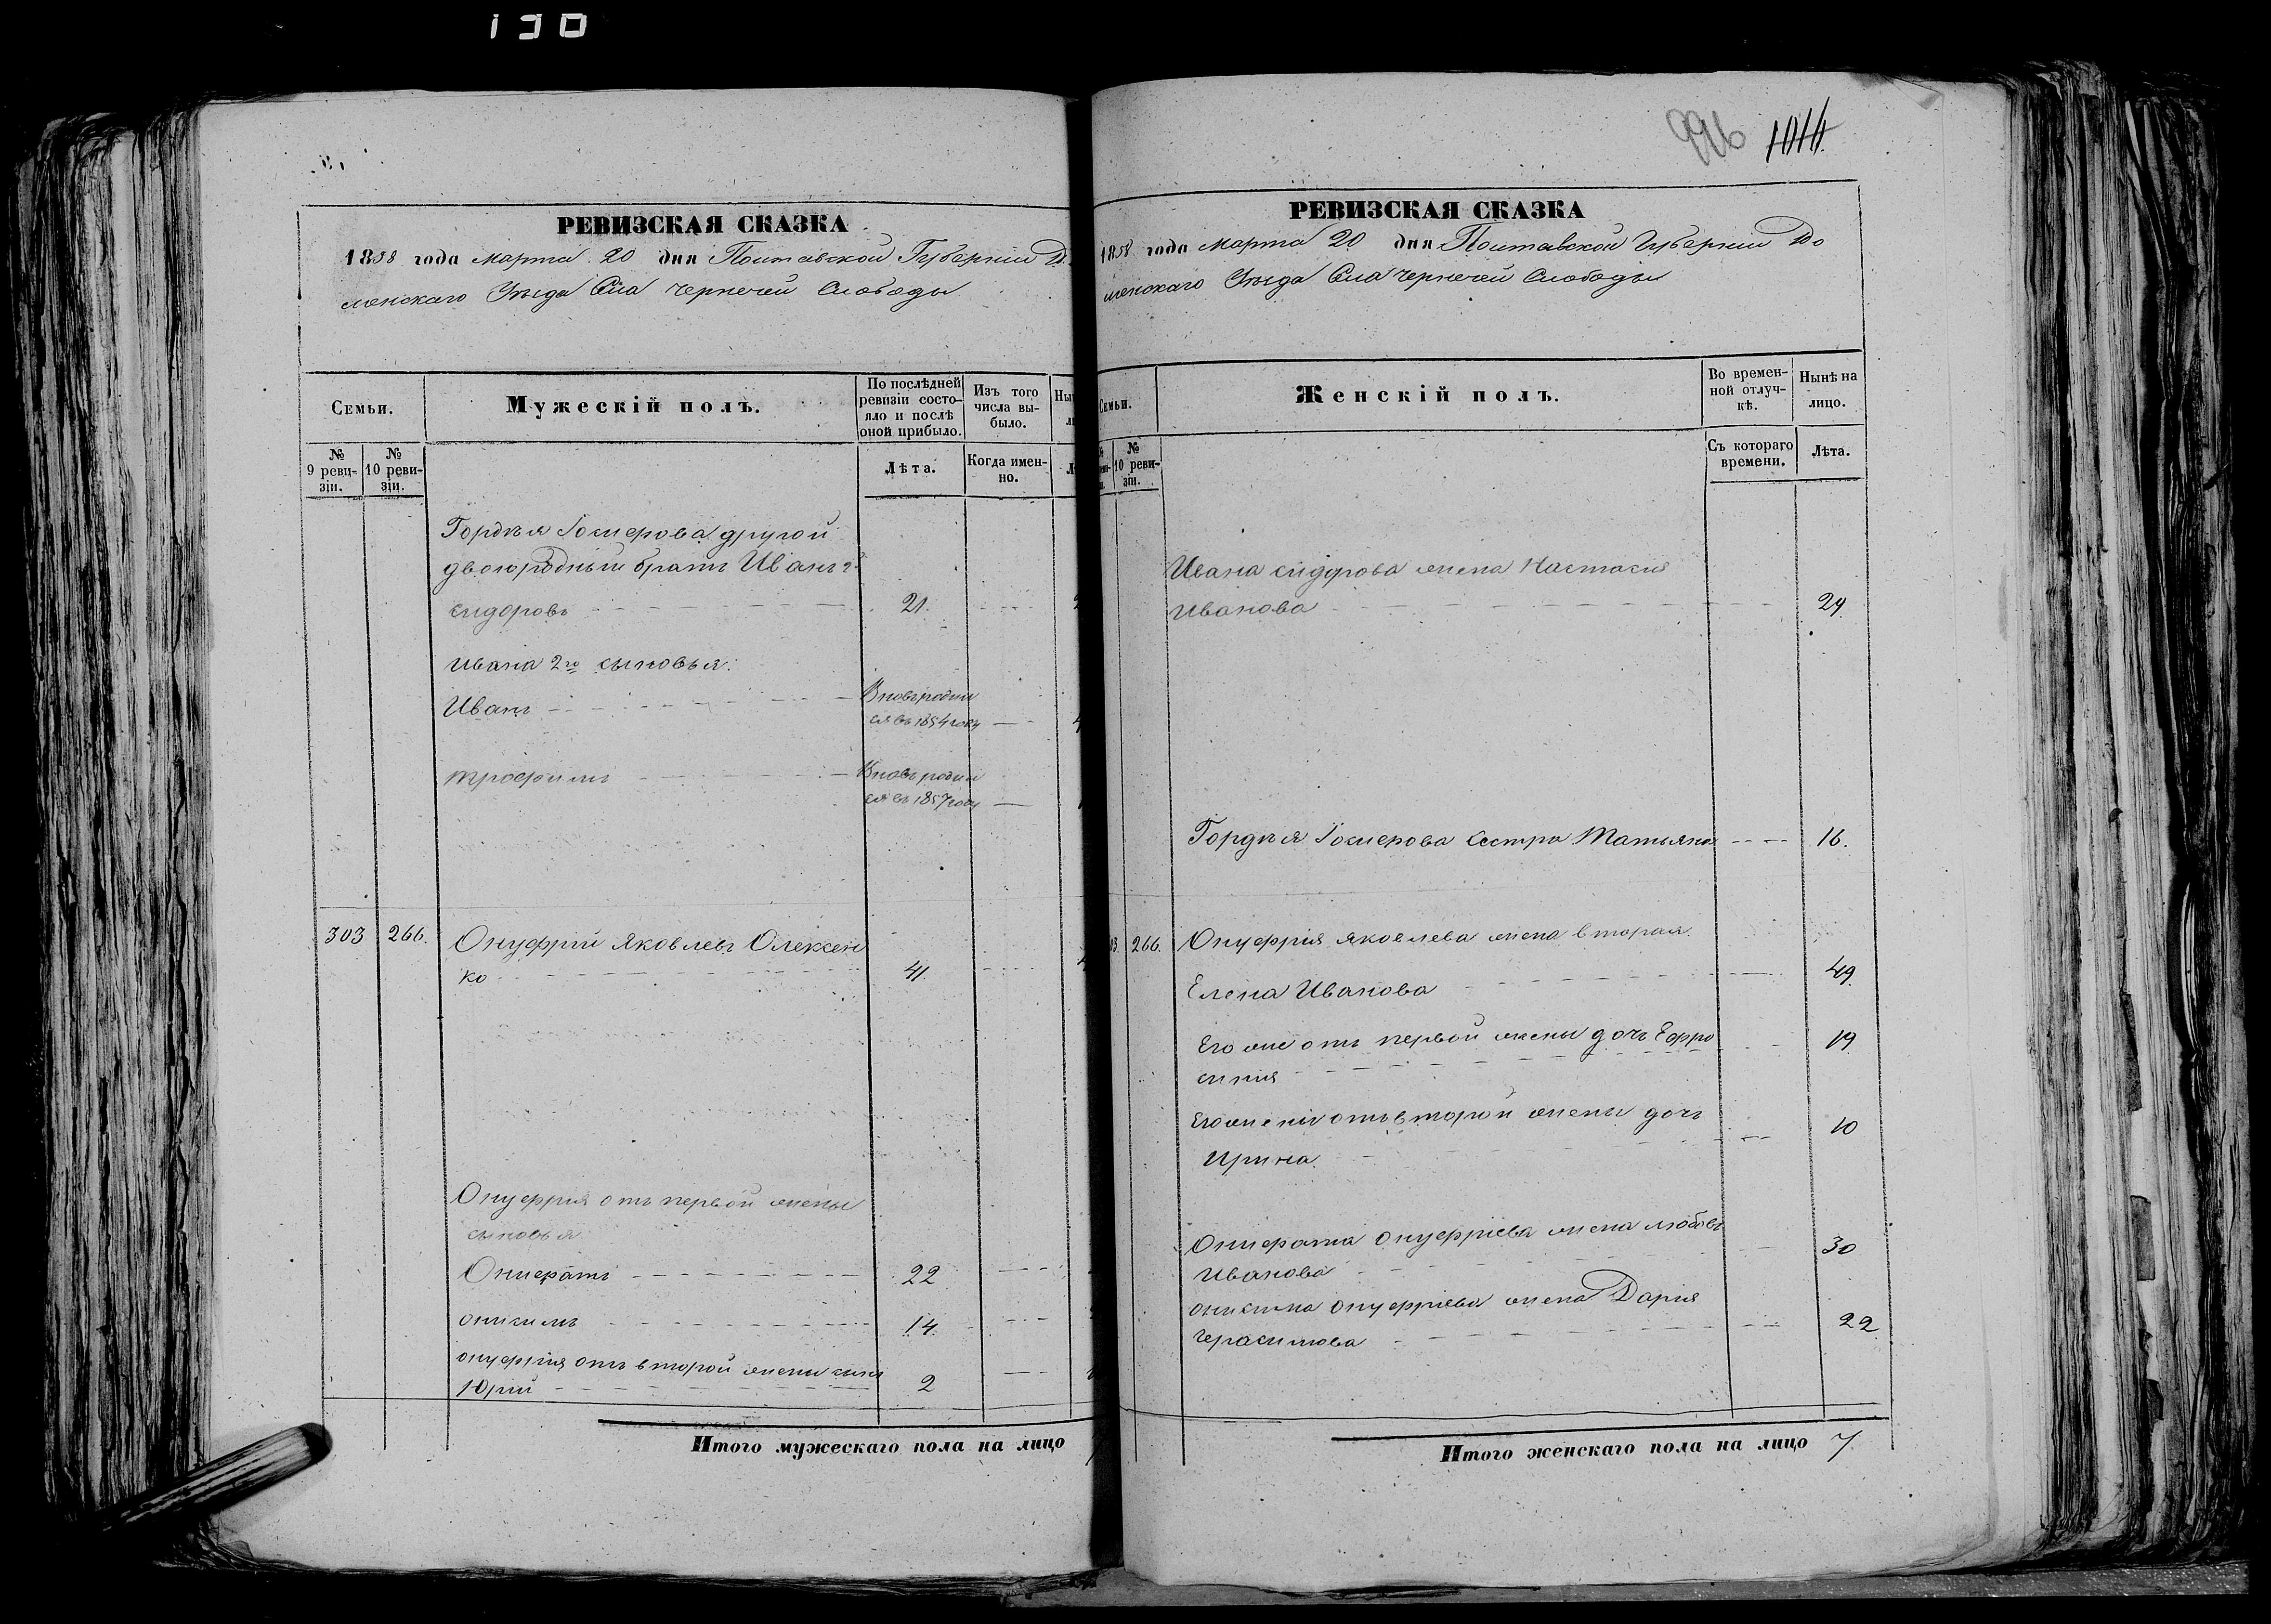 130
РЕВИЗСКАЯ СКАЗКА
1858 года марта 20 дня Полтавской Губерніи Ро
менскаго Уѣзда Села чернечей Слободы
Семьи.
Мужескій полъ.
По послѣдней
ревизіи состо-
яло и послѣ
оной прибыло.
Изъ того
числа вы-
было.
№
9 реви-
зіи.
№
10 реви-
зіи.
Лѣта.
Когда имен-
но.
Гордѣя другой
двоюродный братъ Иванъ 2й
сидоровъ 21.
Ивана 2го сыновья:
Иванъ Вновь родил
ся въ 1854 году
трофимъ Вновь родил
ся въ 1857 году
303 266. Онуфрій Яковлевъ Олексен
ко 41
Онуфрія отъ первой жены
сыновья
22
онисимъ 14.
онуфрія отъ второй жены сынъ
Юрій 2
Итого мужескаго пола на лицо
996 1014
РЕВИЗСКАЯ СКАЗКА
1858 года марта 20 дня Полтавской Губерніи Ро
менскаго Уѣзда Села чернечей Слободы
Семьи.
Женскій полъ.
Во времен-
ной отлуч-
кѣ.
Нынѣ на
лицо.
№
10 реви-
зіи.
Съ котораго
времени.
Лѣта.
Ивана сидорова жена Настасия
Иванова 24
Гордѣя сестра Татьяна 16.
266. Онуфрія яковлева жена вторая
Елена Иванова 49
Его же отъ первой жены дочь Ефро
синия 19
отъ второй жены дочь
Ирина 10
онуфріева жена любовь
Иванова 30
онисима онуфріева жена Дария
герасимова 22
Итого женскаго пола на лицо 7